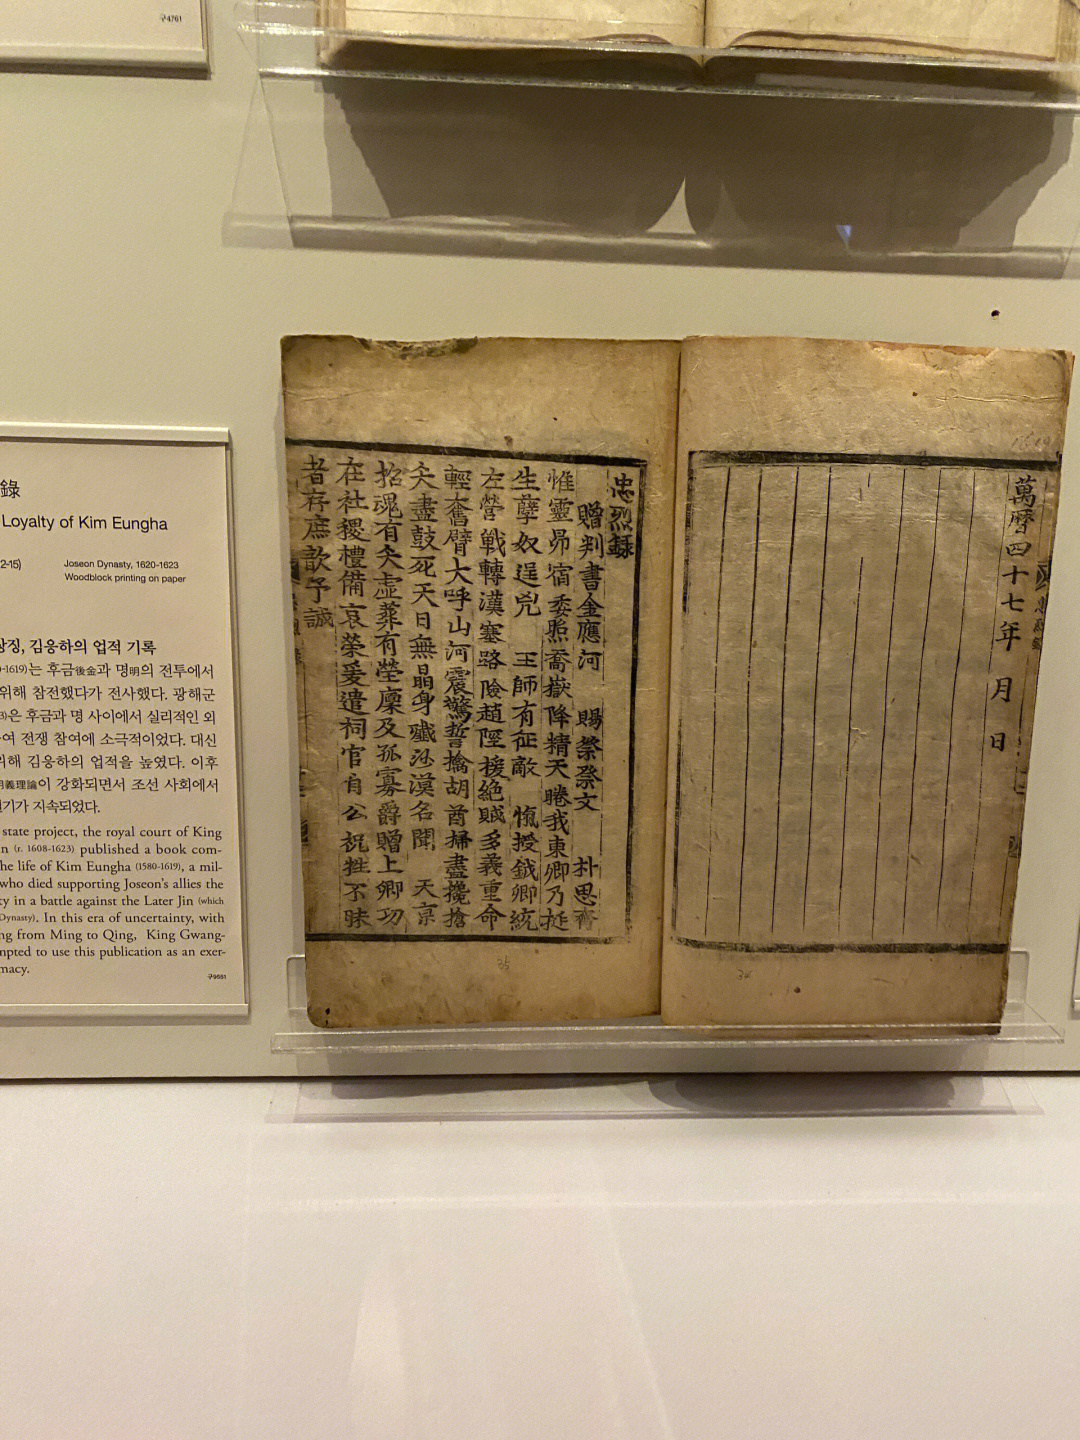 구4761
錄
Loyalty of Kim Eungha
2-15)
Joseon Dynasty, 1620-1623
Woodblock printing on paper
상징, 김응하의 업적 기록
-1619)는 후금後金과 명明의 전투에서
위해 참전했다가 전사했다. 광해군
3)은 후금과 명 사이에서 실리적인 외
여 전쟁 참여에 소극적이었다. 대신
위해 김응하의 업적을 높였다. 이후
明義理論이 강화되면서 조선 사회에서
기가 지속되었다.
state project, the royal court of King
n (r. 1608-1623) published a book com-
he life of Kim Eungha (1580-1619), a mil-
who died supporting Joseon's allies the
ty in a battle against the Later Jin (which
Dynasty). In this era of uncertainty, with
ng from Ming to Qing, King Gwang-
mpted to use this publication as an exer-
macy.
구9581
萬曆四十七年 月 日
忠烈錄
忠烈錄
贈判書金應河 賜祭祭文 朴思齊
惟靈昴宿委炁喬嶽降精天睠我東卿乃挺
生孽奴逞兇 王師有征敵 愾授鉞卿統
左營戰轉漢塞路險趙陘援絶賊多義重命
輕奮臂大呼山河震驚誓擒胡酋掃盡攙搶
矢盡鼓死天日無晶身殲沙漠名聞 天京
招魂有矢虛葬有塋廩及孤寡爵贈上卿功
在社稷禮備哀榮爰遣祠官自公祝牲不昧
者存庶歆予誠
35
34